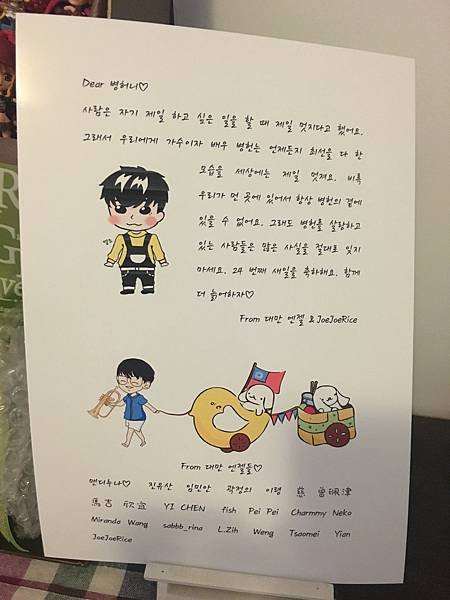 Dear 병허니♡
사람은 자기 제일 하고 싶은 일을 할 때 제일 멋지다고 했어요.
그래서 우리에게 가수이자 배우 병헌는 언제든지 최선을 다 한
모습을 세상에는 제일 멋져요. 비록
우리가 먼 곳에 있어서 항상 병헌의 곁에
있을 수 없어요. 그래도 병헌를 사랑하고
있는 사람들은 많은 사실을 절대로 잊지
마세요. 24 번째 새일을 축하해요. 함께
더 늙어하자♡
From 대만 엔젤 & JoeJoeRice
From 대만 엔젤들♡
맨디누나♡ 진유산 임민안 곽정의 이령 慈 曾珮津
馬吉 欣宜 YI CHEN fish Pei Pei Charmmy Neko
Miranda Wang sabbb_rina L.Zih Weng Tsaomei Yian
JoeJoeRice